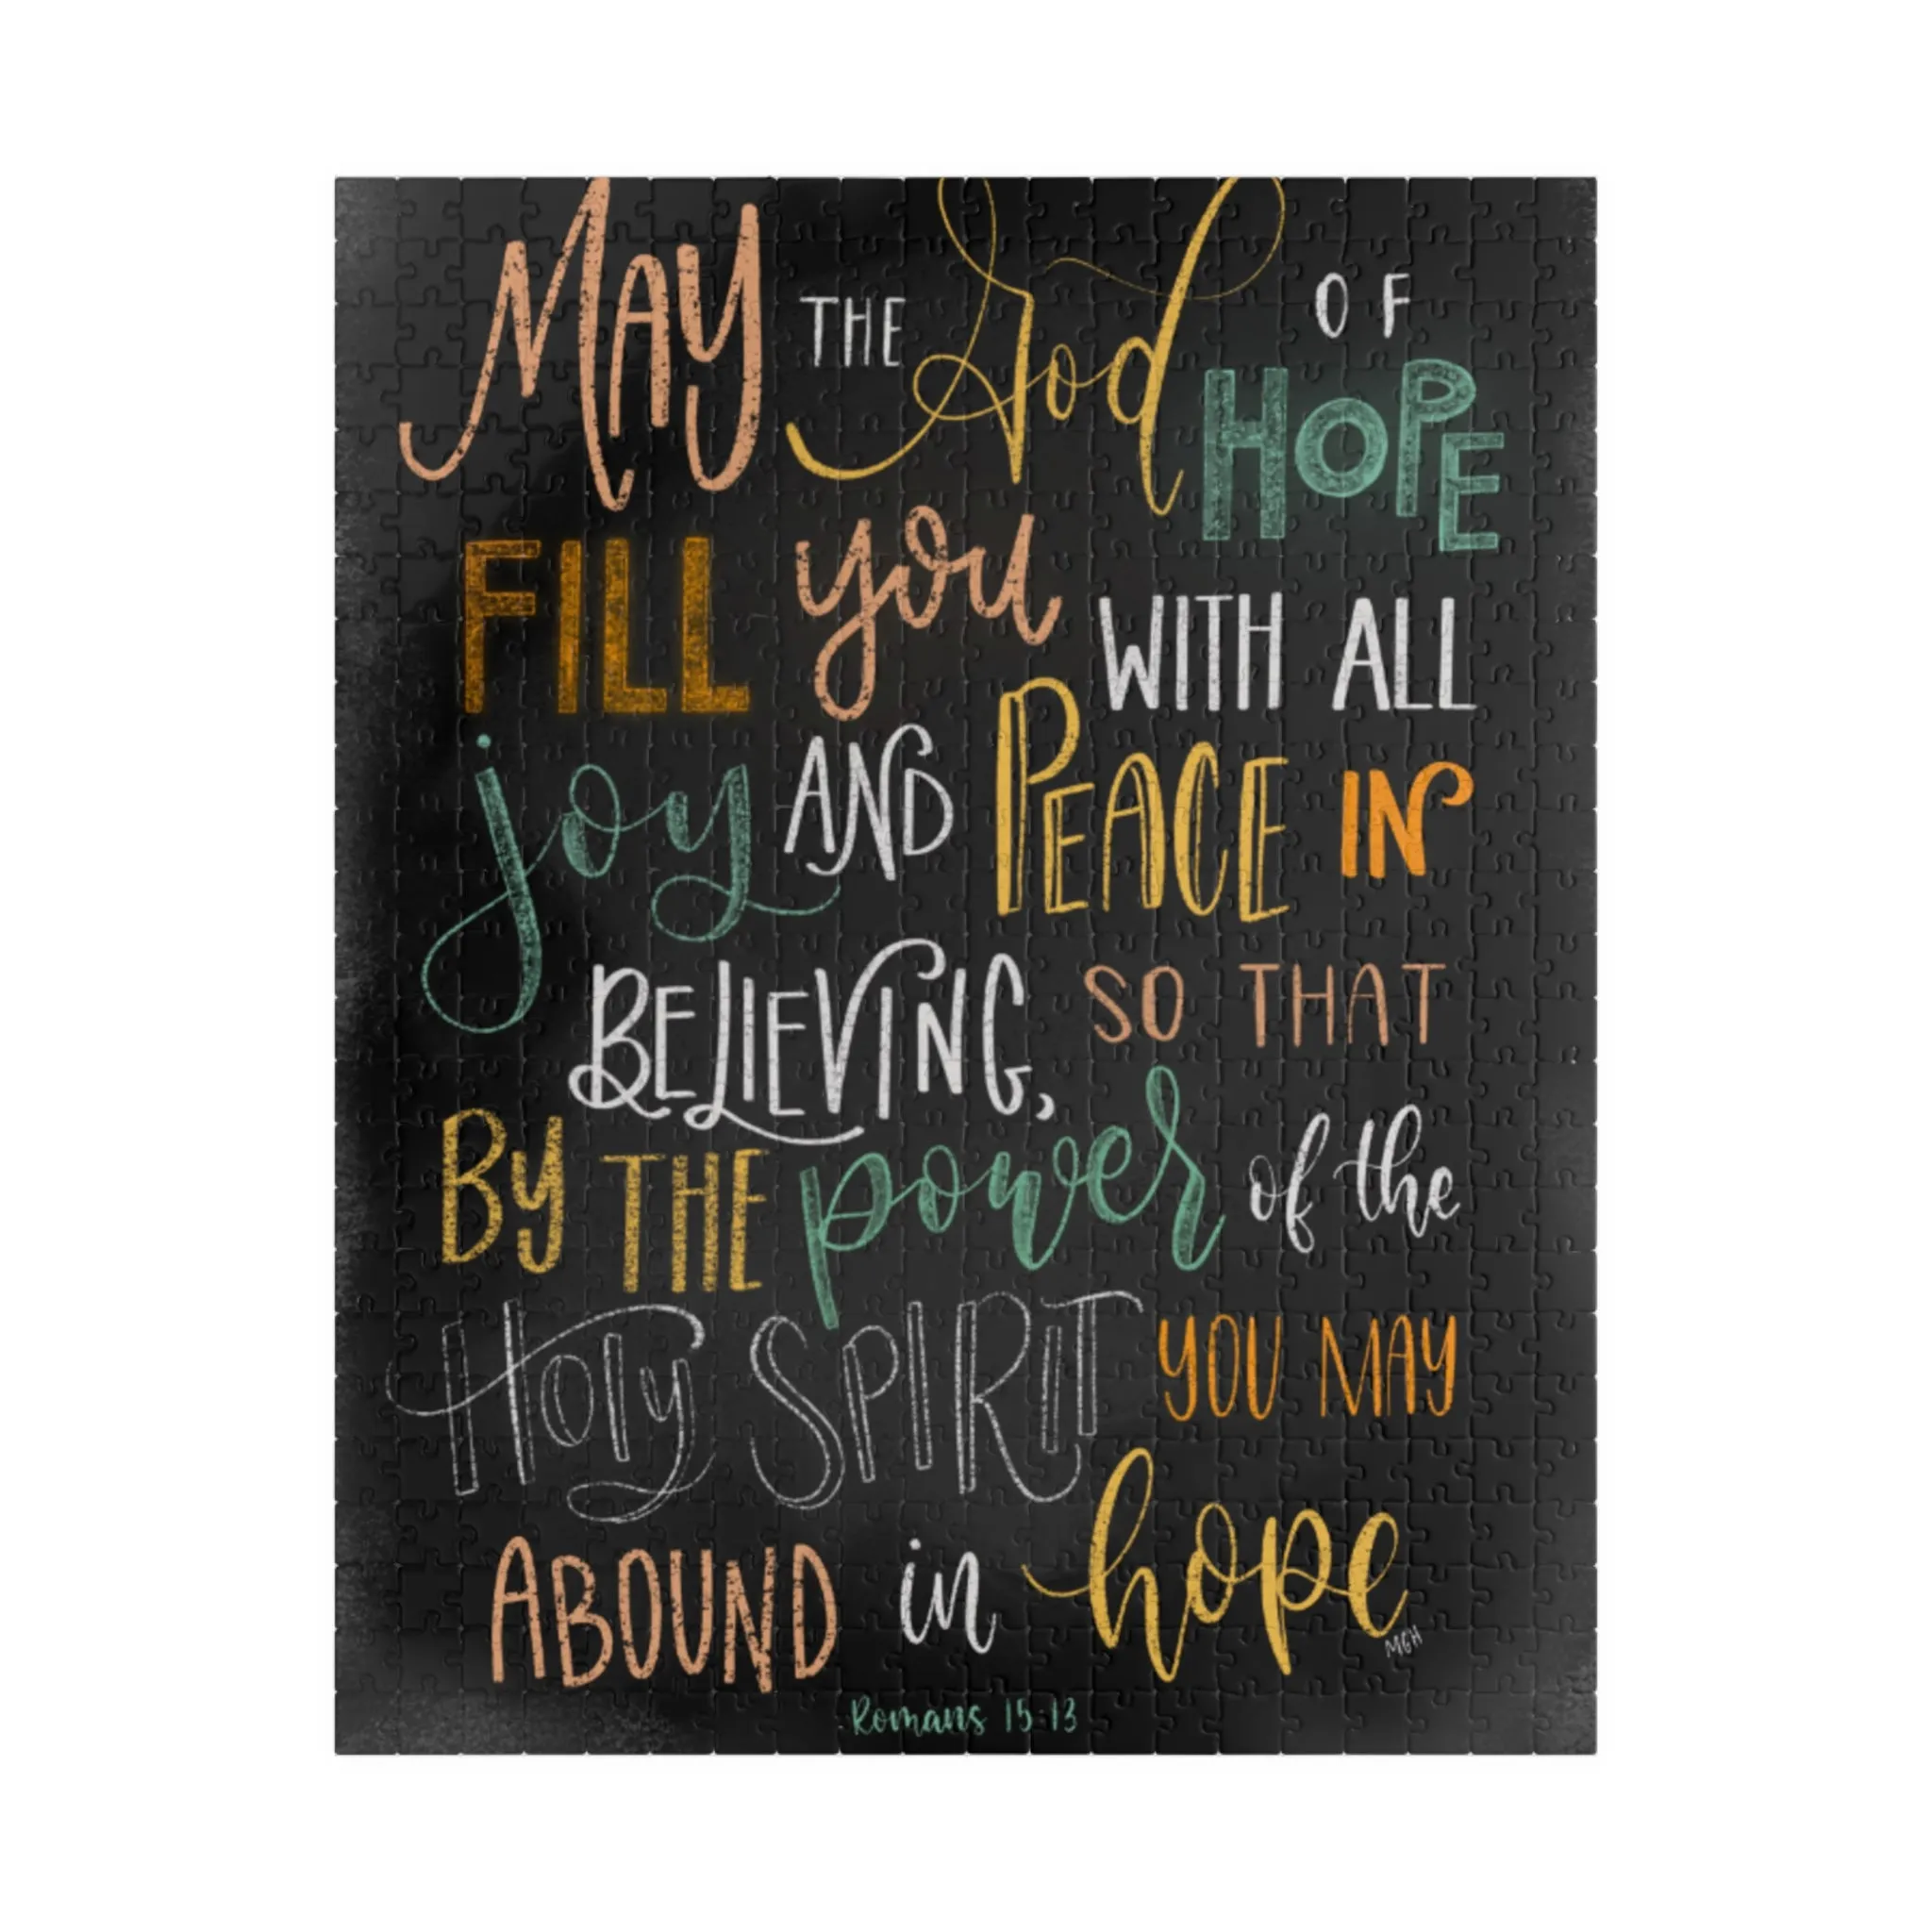 MAY THE God OF HOPE
FILL you WITH ALL
joy AND PEACE IN
BELIEVING, SO THAT
By THE power of the
HOly SPIRIT YOU MAY
ABOUND in hope
MGH
Romans 15:13